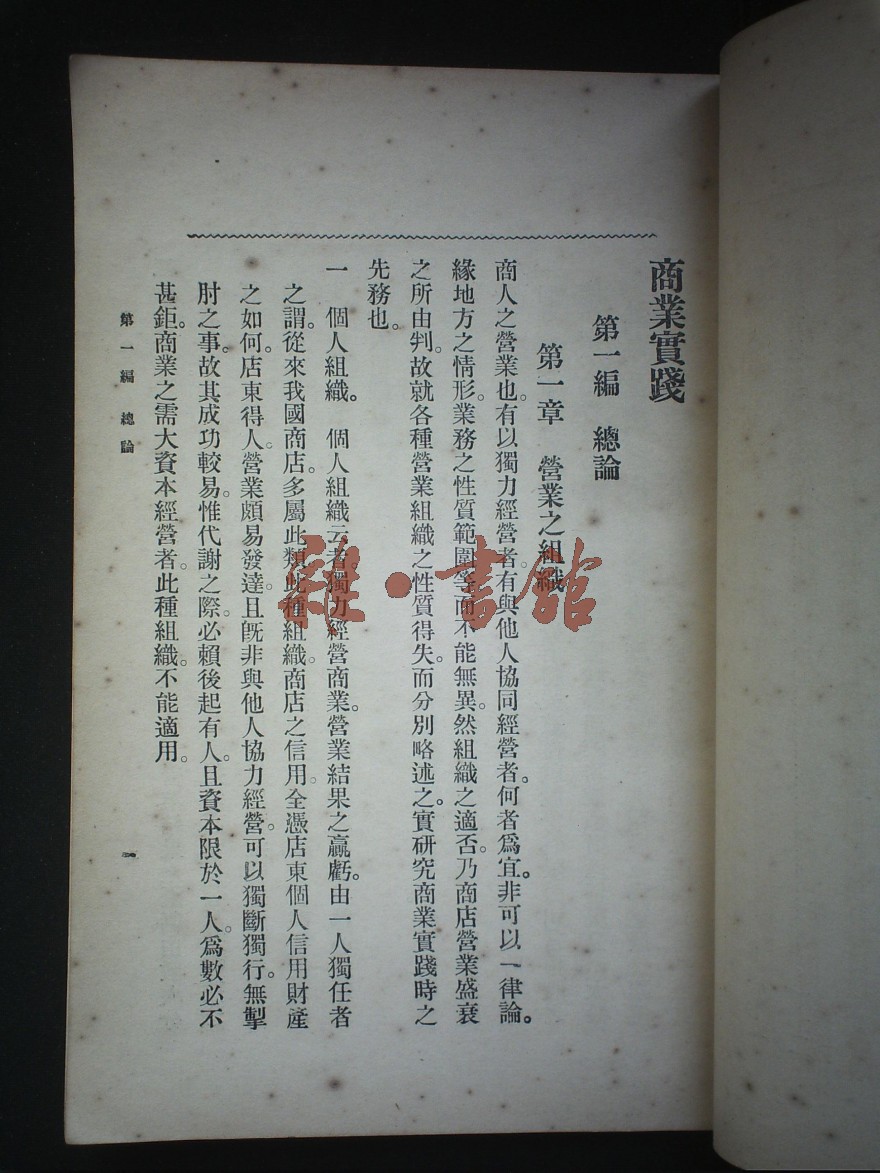 商業實踐
第一編　總論
第一章　營業之組織
商人之營業也。有以獨力經營者。有與他人協同經營者。何者爲宜。非可以一律論。
緣地方之情形。業務之性質範圍等而不能無異。然組織之適否。乃商店營業盛衰
之所由判。故就各種營業組織之性質得失。而分別略述之。實研究商業實踐時之
先務也。
一　個人組織。　個人組織云者。獨力經營商業。營業結果之贏虧。由一人獨任者
之謂。從來我國商店。多屬此類。此種組織。商店之信用。全憑店東個人信用財產
之如何。店東得人。營業頗易發達。且既非與他人協力經營。可以獨斷獨行。無掣
肘之事。故其成功較易。惟代謝之際。必賴後起有人。且資本限於一人。爲數必不
甚鉅。商業之需大資本經營者。此種組織。不能適用。
第一編　總論
一
雜·書館